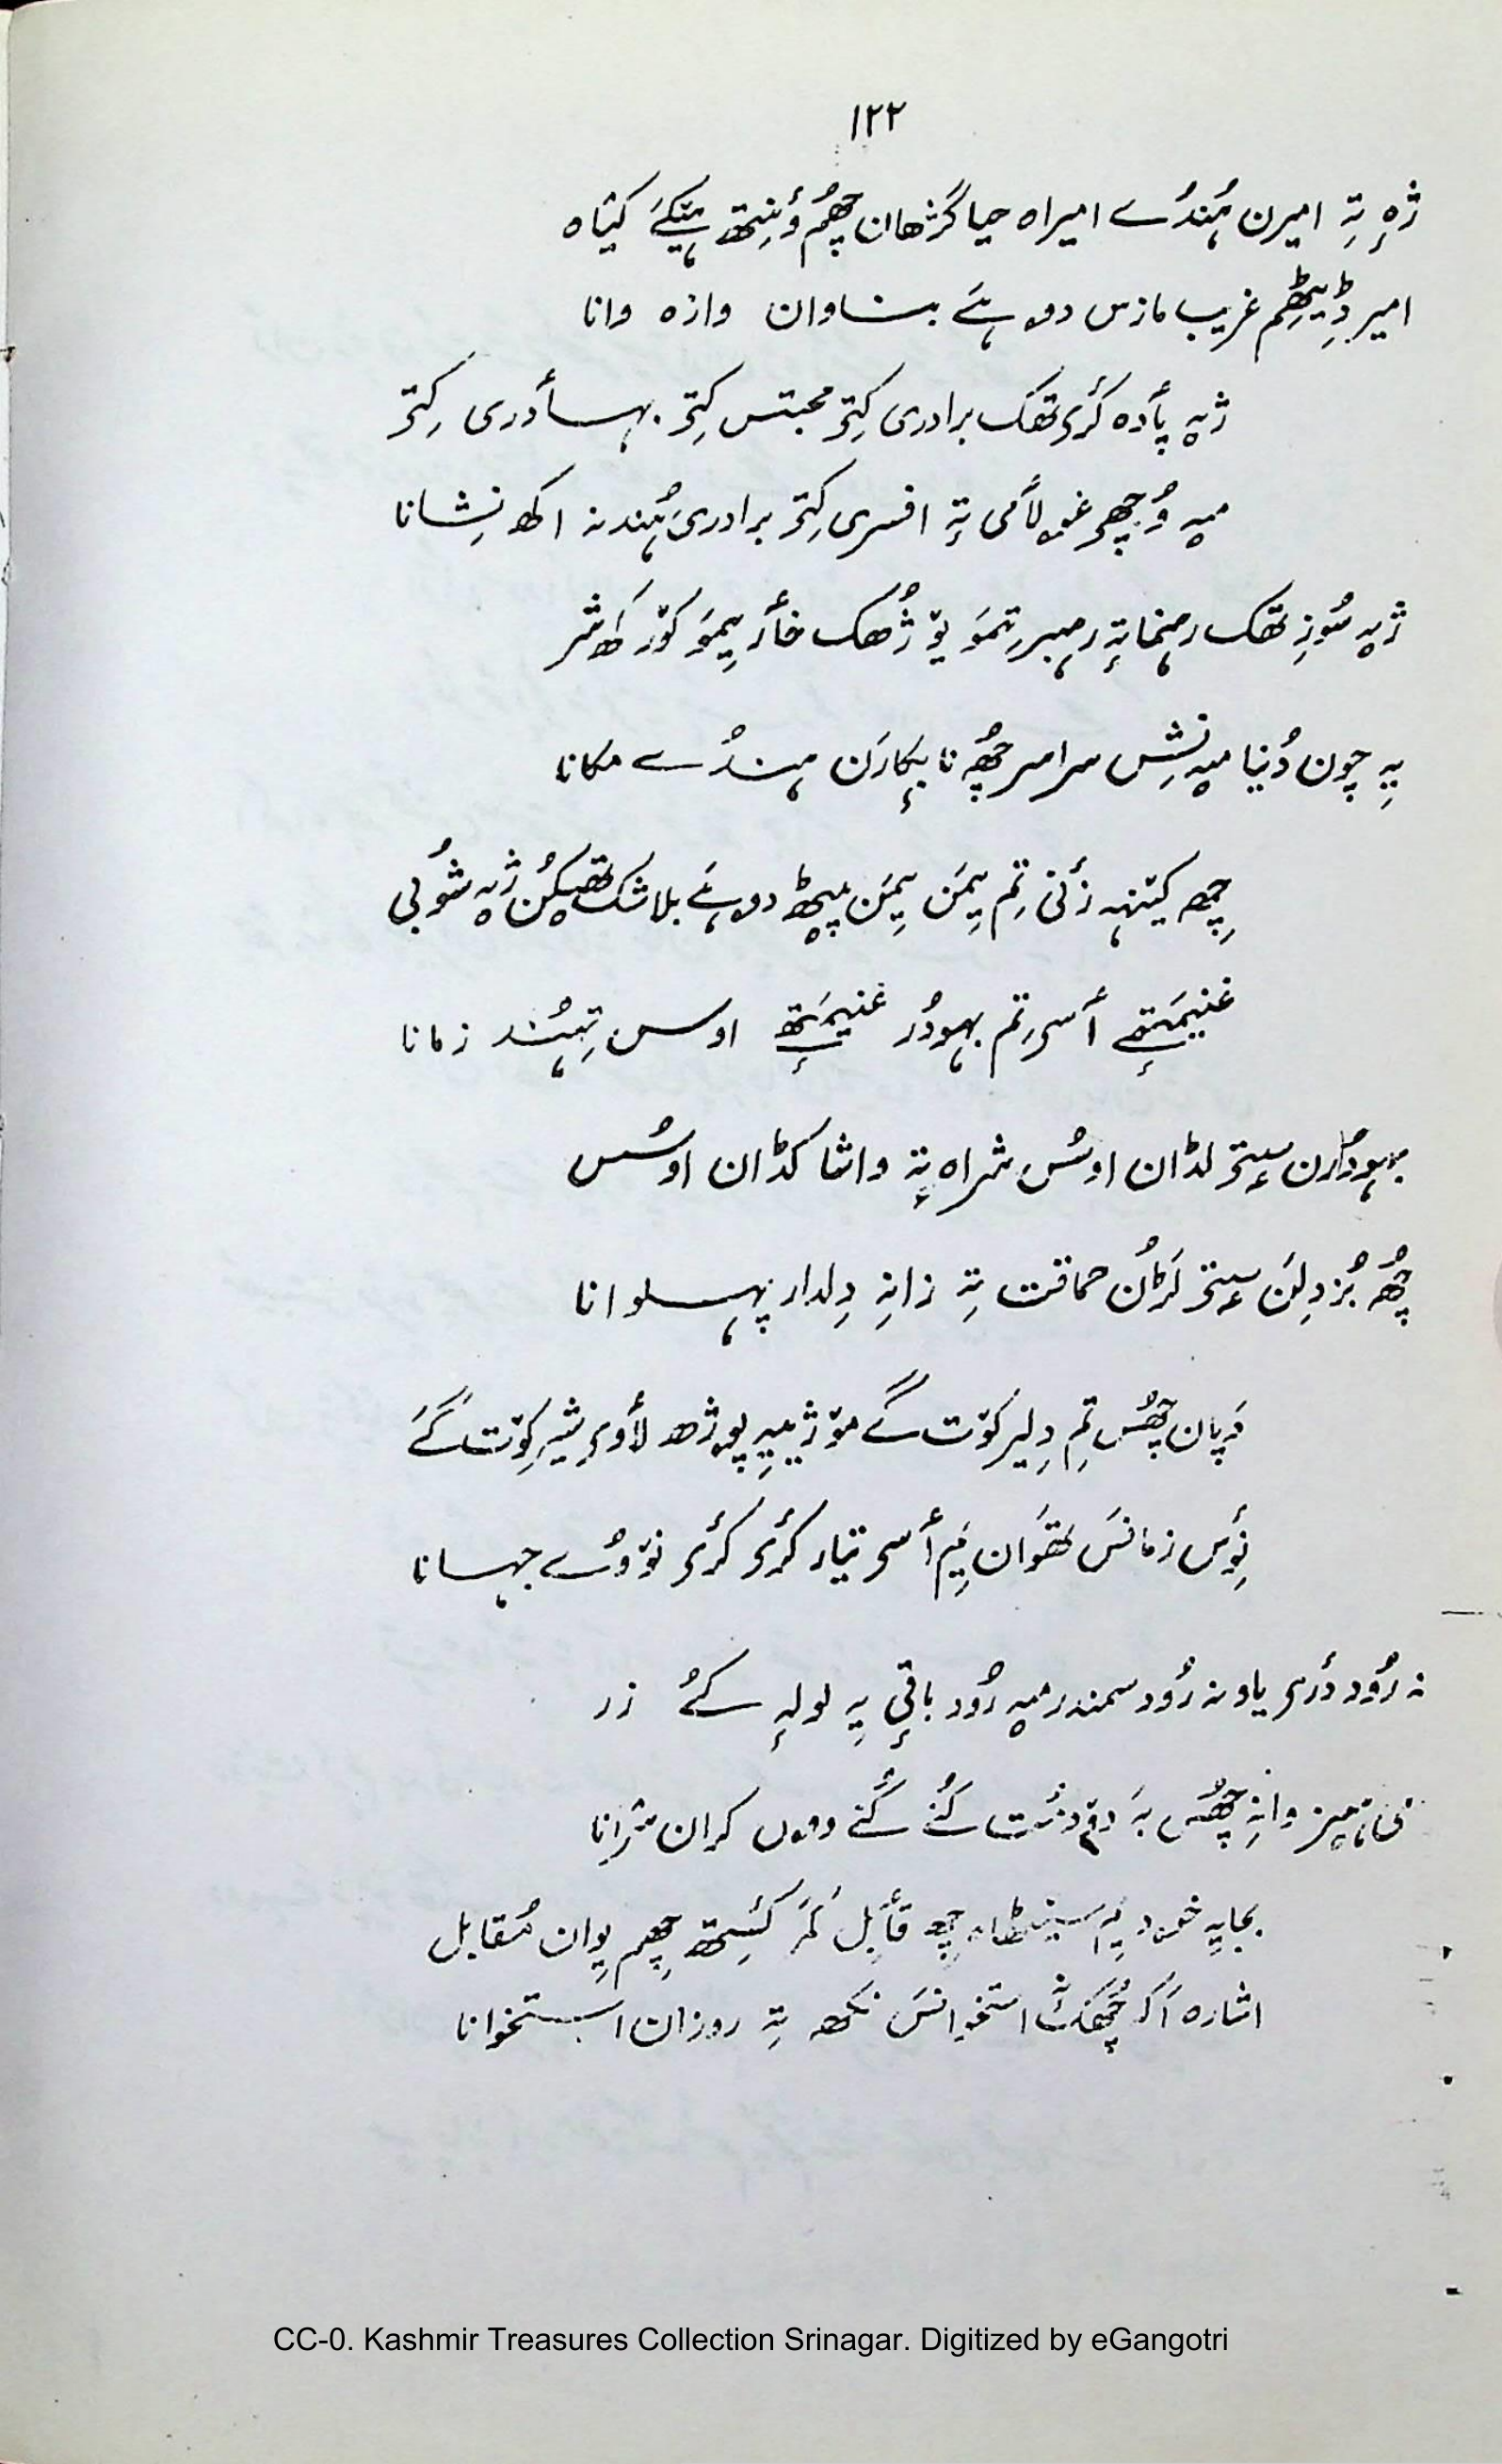 ۱۲۲
ژٕہ تہٕ امیرن ہُنٛدُے امیراہ حیا گژھان چھُم وُنِتھ ہیٚکےَ کیٛاہ
امیر ڈیٖٹھِم غریب مازس دوہےَ بناوان وازہ وانا
ژیہ پأدہ کٔرِتھک برادری کِتۍ محبتس کِتۍ بہأدری کِتۍ
میہ وُچھۍ غولأمی تہٕ افسری کِتۍ برادری ہُنٛد نہ اکھ نِشانا
ژیہ سُوزِتھک رہنما تہٕ رہبر تِمَو یوٚژھُک خأر یِمَو کوٚر شر
یہِ چون دُنیا میہ نِشِ سراسر چھُہ نا بیٚکارَن ہنٛدُے مکانا
چھِ کیٚنٛہہ زٔنۍ تِم یِمَن یِمَن پیٹھ دوہےَ بلاشک تھیٚکُن ژیہ شُوبی
غنیمَتٕے أسۍ تِم بہودُر غنیمَتٕے اوس تِہُنٛد زمانا
بہودُرن سیٖتۍ لڈان اوسُس شراہ تہٕ واشا کڈان اوسُس
چھُہ بُزدِلَن سیٖتۍ لَڑُن حماقت تہِ زانہِ دِلدار پہلوانا
دَپان چھُس تِم دِلیر کوٚت گے موٚژییہِ پوژھ لأوۍ شیر کوٚت گےَ
نٔوِس زمانسَ تھَوان یِم أسۍ تیار کٔرۍ کٔرۍ نوٚوُے جہانا
نہ رُود دٔریاو نہ رُود سمندر میہ رُود باقٕی یہِ لولہٕ کےُ زر
وانہِ چھُس بہَ دۅدَست کُنے کُنے دوہوں کران شرانا
بجایہِ خود یہِ سیٚٹھاہ چھِ قأبِل مَگر کٔسِتھ چھِم یِوان مُقابل
اشارہ اَکہ چھُکھ استخوانسَ نکھہ تہِ روزان استخوانا
CC-0. Kashmir Treasures Collection Srinagar. Digitized by eGangotri